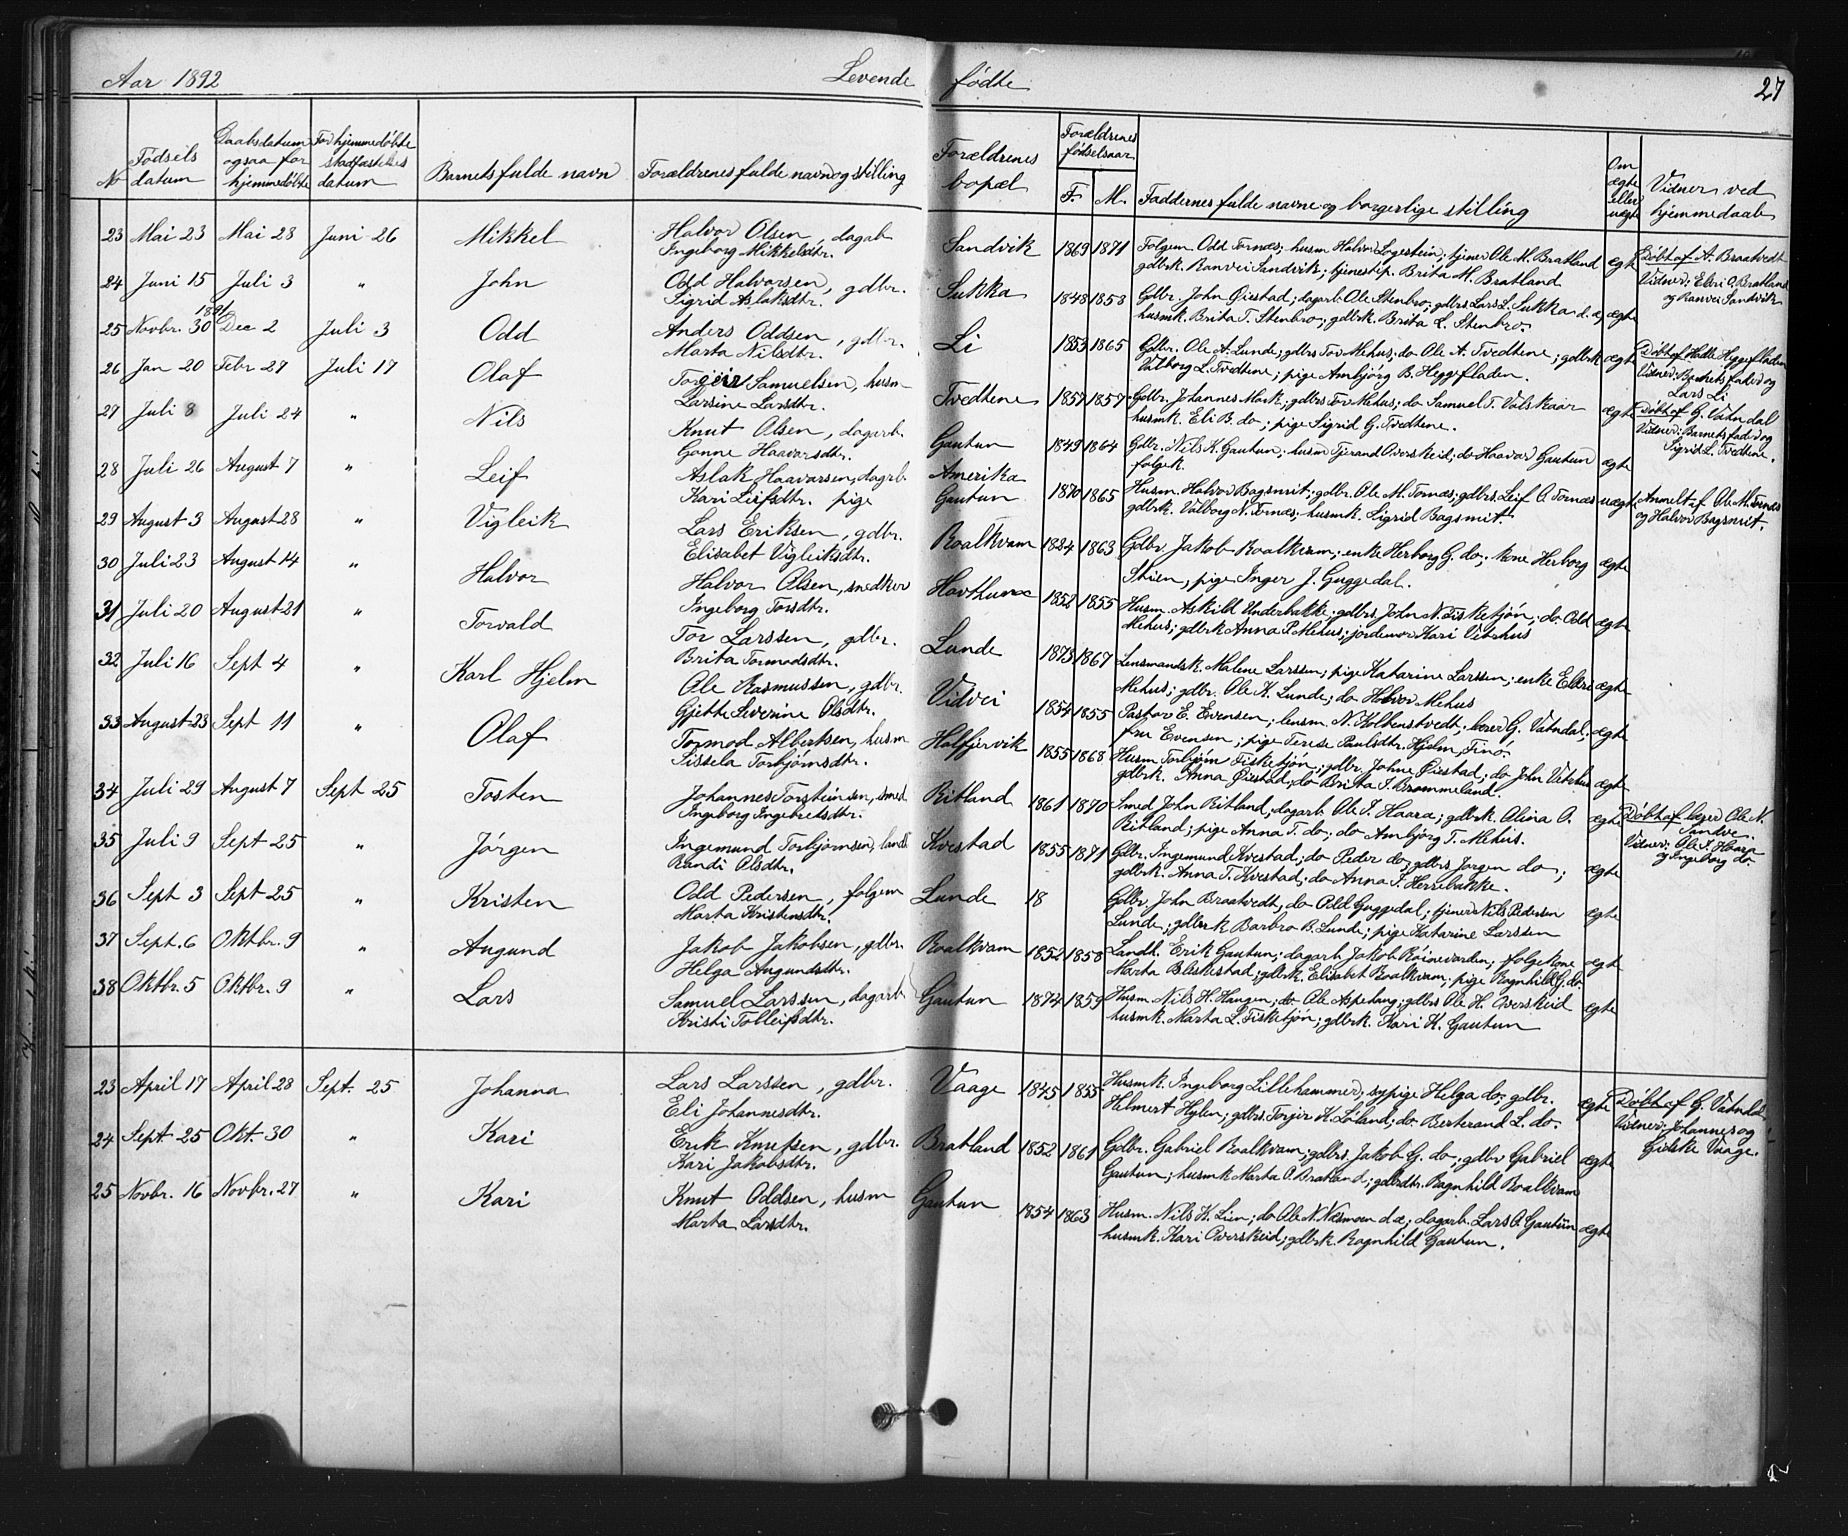 Aar 1892 Levende fødte 27
No Fødsels datum Daabsdatum ogsaa for hjemmedøbte For hjemmedøbte stadfæstelses datum Barnets fulde navn Forældrenes fulde navn og stilling Forældrenes bopæl Forældrenes fødselsaar F. M. Faddernes fulde navne og borgerlige stilling Om ægte eller uægte Vidner ved hjemmedaab
23 Mai 23 Mai 28 Juni 26 Mikkel Halvor Olsen, dagab. Sandvik 1869 1871 Folgem. Odd Tornæs; husm. Halvor Logestein; tjener Ole M. Bratland ægte Døbt af A. Braatvedt
Ingeborg Mikkelsdtr. gdbrk. Ranvei Sandvik; tjenestep. Brita M. Bratland Vidner: Eldri O. Bratland
og Ranvei Sandvik
24 Juni 15 Juli 3 " John Odd Halvorsen, gdbr. Sukka 1848 1853 Gdbr. John Øiestad; dagarb. Ole Stenbro; gdbrs Lars L. Sukka d. æ. ægte
Sigrid Aslaksdtr. husmk. Brita T. Stenbro; gdbrk. Brita L. Stenbro.
25 Novbr. 30 1891 Dec 2 Juli 3 Odd Anders Oddsen, gdbr. Li 1853 1865 Gdbr. Ole A. Lunde; gdbrs Tor Mehus; do Ole A. Tvedtene; gdbrk ægte Døbt af Halle Heggefladen
Marta Nilsdtr. Valborg L. Tvedtene; pige Ambjørg B. Heggefladen. Vidner: Barnets fader og
Lars Li
26 Jan 20 Febr 27 Juli 17 Olaf Torgeir Samuelsen, husm Tvedtene 1857 1857 Gdbr. Johannes Mork; gdbrs Tor Mehus; do Samuel T. Valskaar ægte Døbt af G. Vatndal
Larsine Larsdtr. husmk. Eli B. do; pige Sigrid G. Tvedtene. Vidner: Barnets fader og
Sigrid L. Tvedtene.
27 Juli 8 Juli 24 " Nils Knut Olsen, dagarb. Gautun 1849 1864 Gdbr. Nils K. Gautun; husm Tjerand Overskeid; do Haavar Gautun ægte
Gonne Haavarsdtr. folgek.
28 Juli 26 August 7 " Leif Aslak Haavarssen, dagrb. Amerika 1870 1865 Husm. Halvor Bagsmit; gdbr. Ole M. Tornæs; gdbrs. Leif O. Tornæs uægte Anmeldt af Ole M. Tornæs
Kari Leifsdtr. pige Gautun gdbrk. Valborg N. Tornæs; husmk. Sigrid Bagsmit. og Halvor Bagsmit.
29 August 3 August 28 " Vigleik Lars Eriksen, gdbr. Roalkvam 1824 1863 Gdbr Jakob Roalkvam; enke Herborg G. do; kone Herborg ægte
Elisabet Vigleiksdtr. Stien, pige Inger J. Guggedal.
30 Juli 23 August 14 " Halvor Halvor Olsen, snedker 1852 1855 Husm. Askild Underbakke; gdbrs. John N. Fisketjøn; do Odd ægte
Ingeborg Torsdtr. Mehus; gdbrk Anna P. Mehus; jordemor Kari Vetrhus
31 Juli 20 August 21 " Torvald Tor Larssen, gdbr. Lunde 1873 1867 Lensmandsk. Malene Larssen; pige Katarine Larssen; enke Eldri ægte
Brita Tormodsdtr. Mehus; gdbr. Ole K. Lunde; do Halvor Mehus
32 Juli 16 Sept 4 " Karl Hjelm Ole Rasmussen, gdbr. Vidvei 1854 1855 Pastor E. Evensen; lensm. N. Kolbenstvedt; lærer G. Vatndal; ægte
Gjette Severine Olsdtr. fru Evensen; pige Terese Paulsdtr. Hjelm, Finø.
33 August 23 Sept 11 " Olaf Tormod Albertsen, husm Halfjirvik 1855 1868 Husm. Torbjørn Fisketjøn; gdbr. Johne Øiestad; do John Vetrhus ægte
Sissela Torbjørnsdtr. gdbrk. Anna Øiestad; do Brita T. Brommeland.
34 Juli 29 August 7 Sept 25 Tosten Johannes Torsteinsen, smed Ritland 1861 1870 Smed John Ritland; dagarb. Ole I. Haara; gdbrk. Olina O. ægte Døbt af lærer Ole N.
Ingeborg Ingebretsdtr. Ritland; pige Anna T. do; do Ambjørg T. Mehus. Sandve.
Vidner; Ole I. Haara
og Ingeborg do
35 Juli 9 Sept 25 " Jørgen Ingemund Torbjørnsen, landh. Kvestad 1855 1871 Gdbr. Ingemund Kvestad; do Peder do; gdbrs Jorgen do; ægte
Randi Olsdtr. gdbrk. Anna T. Kvestad; do Anna I. Herrebakke.
36 Sept 3 Sept 25 " Kristen Odd Pedersen, folgem Lunde 18 Gdbr John Braatvedt, do Odd Guggedal; tjener Nils Pedersen ægte
Marta Kristensdtr. Lunde; gdbrk Barbro B. Lunde; pige Katarine Larssen
37 Sept. 6 Oktbr. 9 " Augund Jakob Jakobsen, gdbr. Roalkvam 1852 1858 Landh. Erik Gautun; dagarb Jakob Röinevarden; folgekone ægte
Helga Augundsdtr. Marta Bleskestad; gdbrk. Elisabet Roalkvam; pige Ragnhild G. do
38 Oktbr. 5 Oktbr. 9 " Lars Samuel Larssen, dagarb Gautun 1874 1859 Husm. Nils H. Haugen; do Ole Aspetang; gdbrs Ole H. Overskeid ægte
Kristi Tolleifsdtr. husmk. Marta L. Fisketjøn; gdbrk. Kari K. Gautun
23 April 17 April 28 Sept. 25 Johanna Lars Larssen, gdbr. Vaage 1845 1855 Husmk. Ingeborg Lillehammer; sypige Helga do; gdbr. ægte Døbt af G. Vatndal
Eli Johannesdtr. Helmert Hylen; gdbrs. Torgeir K. Løland; do Berterand L. do. Vidner: Johannes og
Gielske Vaage.
24 Sept 25 Okt. 30 " Kari Erik Knutsen, gdbr. Bratland 1852 1861 Gdbr. Gabriel Roalkvam; gdbrs. Jakob G. do; gdbr Gabriel ægte
Kari Jakobsdtr. Gautun; husmk Marta O. Bratland; gdbrdtr. Ragnhild Roalkvam
25 Novbr. 16 Novbr. 27 " Kari Knut Oddsen, husm Gautun 1854 1863 Husm. Nils K. Lien; do Ole N. Næsmoen d. æ; dagarb. Lars O. Gautun ægte
Marta Larsdtr. husmk. Kari Overskeid; gdbrk. Ragnhild Gautun.